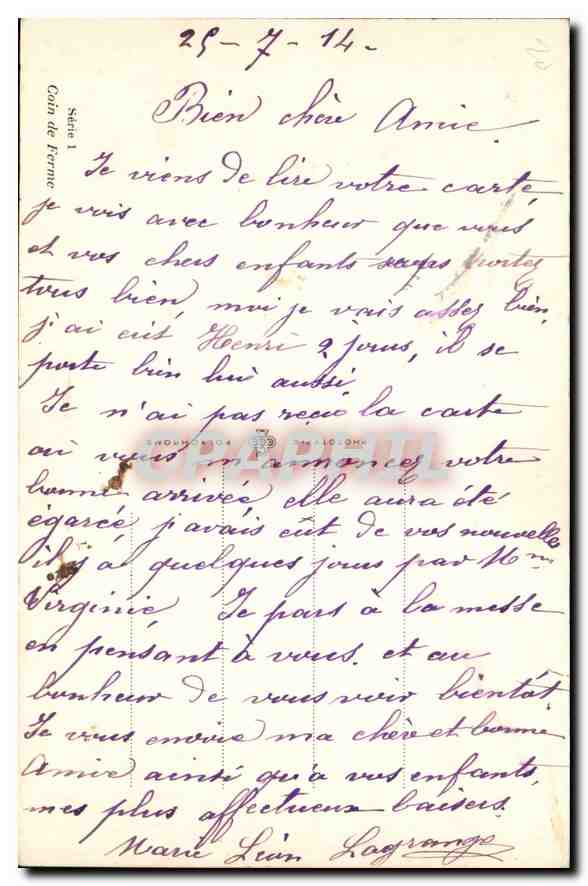 25-7-14.
Bien chère Amie.
Série 1
Coin de Ferme
Je viens de lire votre carte,
je vois avec bonheur que vous
et vos chers enfants portez
tous bien, moi je vais assez bien,
j'ai eut Henri 2 jours, il se
porte bien lui aussi
Je n'ai pas reçu la carte
ou vous m'annoncez votre
bonne arrivée elle aura été
égarée, j'avais eut de vos nouvelles
il y a quelques jours par Mme
Virginie, Je pars à la messe
en pensant à vous, et au
bonheur de vous voir bientôt
Je vous envoie ma chère et bonne
Amie ainsi qu'à vos enfants,
mes plus affectueux baisers.
Marie Léon Lagrange
CPAPHIL